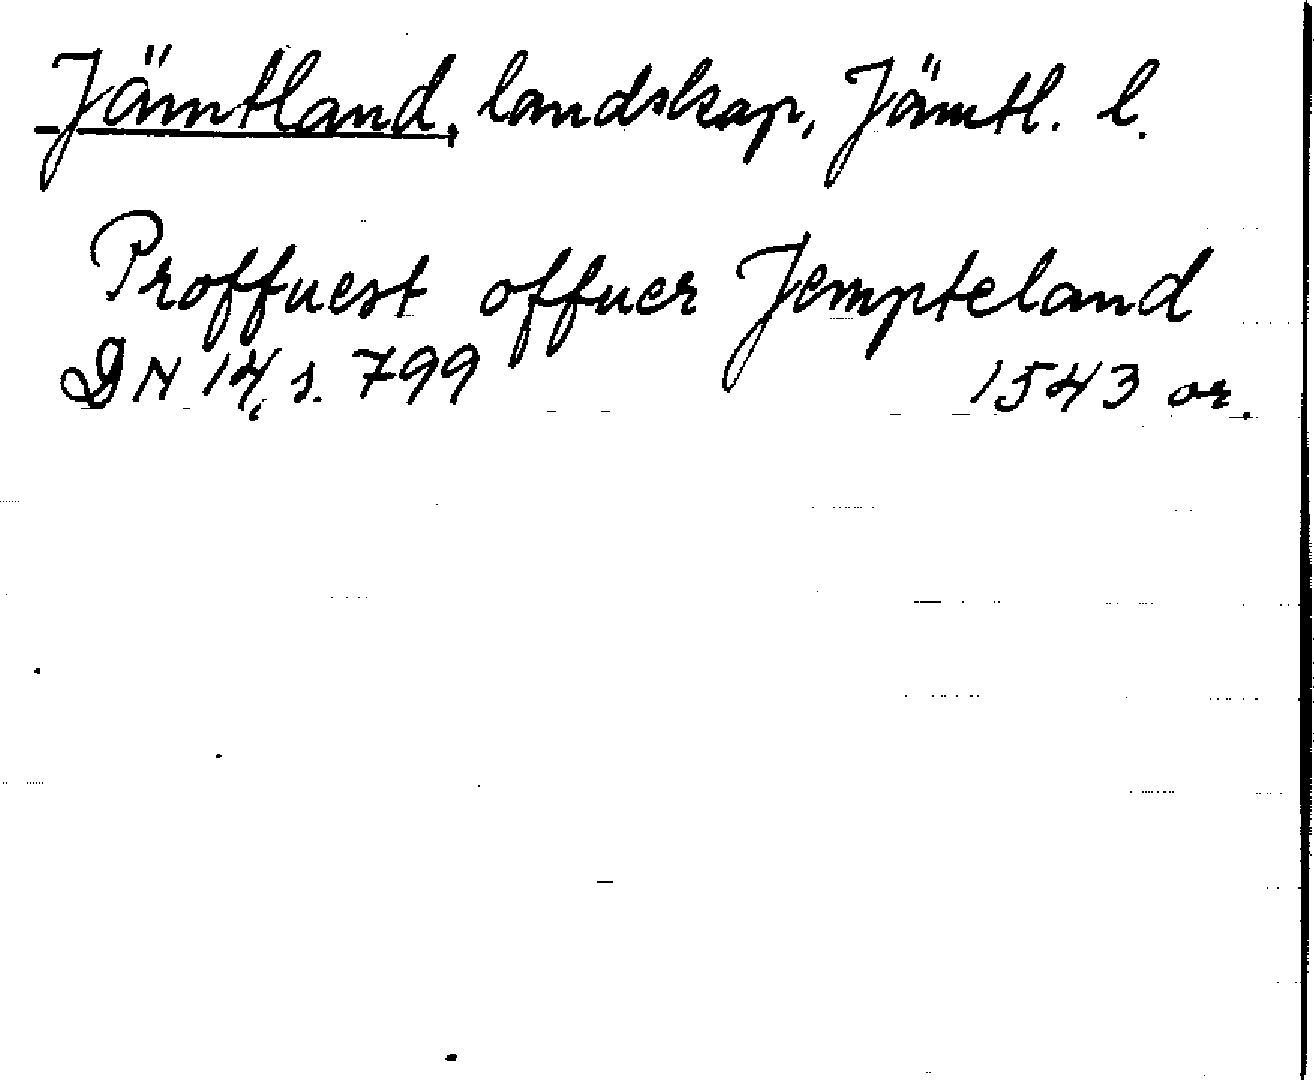 Jämtland, landskap, Jämtl. l.
Proffuest offuer Jempteland
DN 14, s. 799 1543 or.